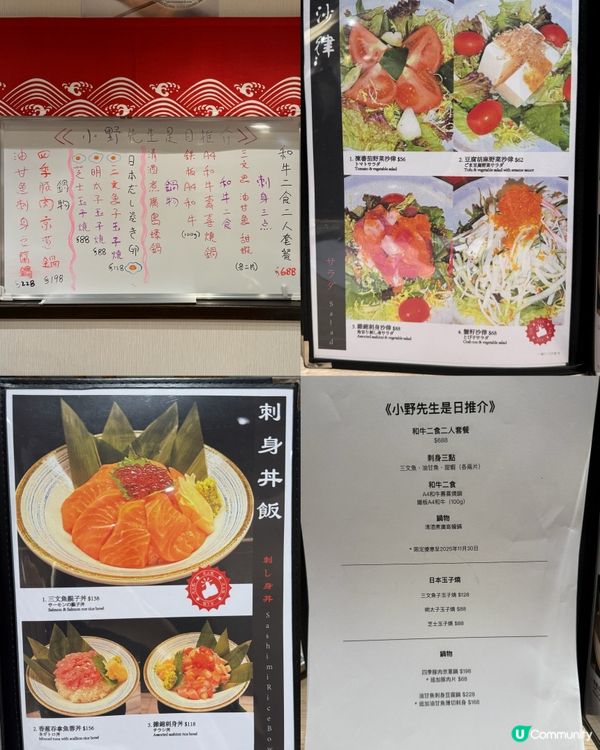 《小野先生是日推介》
和牛二食二人套餐 $688
刺身三点
三文魚 油甘魚 甜蝦 (各二片)
和牛二食
A4和牛壽喜燒鍋
鉄板A4和牛 (100g)
鍋物
清酒煮廣島蠔鍋
日本だし巻き卵
三文魚子玉子燒 $128
明太子玉子燒 $88
芝士玉子燒 $88
鍋物
四季豚肉京蔥鍋 $198
油甘魚刺身豆腐鍋 $228
沙律
1. 凍番茄野菜沙律 $56
トマトサラダ
Tomato & vegetable salad
2. 豆腐胡麻野菜沙律 $62
ごま豆腐野菜サラダ
Tofu & vegetable salad with sesame sauce
3. 雜錦刺身沙律 $88
Assorted sashimi & vegetable salad
4. 蟹籽沙律 $68
とび子サラダ
Crab roe & vegetable salad
サラダ
Salad
刺身丼飯
刺し身丼
Sashimi Rice Bow
1. 三文魚親子丼 $138
サーモンの親子丼
Salmon & Salmon roe rice bowl
2. 香蔥吞拿魚蓉丼 $156
ネギトロ丼
Minced tuna with scallion rice bowl
3. 雜錦刺身丼 $118
チラシ丼
Assorted sashimi rice bowl
《小野先生是日推介》
和牛二食二人套餐
$688
刺身三點
三文魚、油甘魚、甜蝦（各兩片）
和牛二食
A4和牛壽喜燒鍋
鐵板A4和牛（100g）
鍋物
清酒煮廣島蠔鍋
* 限定優惠至2025年11月30日
日本玉子燒
三文魚子玉子燒 $128
明太子玉子燒 $88
芝士玉子燒 $88
鍋物
四季豚肉京蔥鍋 $198
* 追加豚肉片 $68
油甘魚刺身豆腐鍋 $228
* 追加油甘魚薄切刺身 $168
U Community